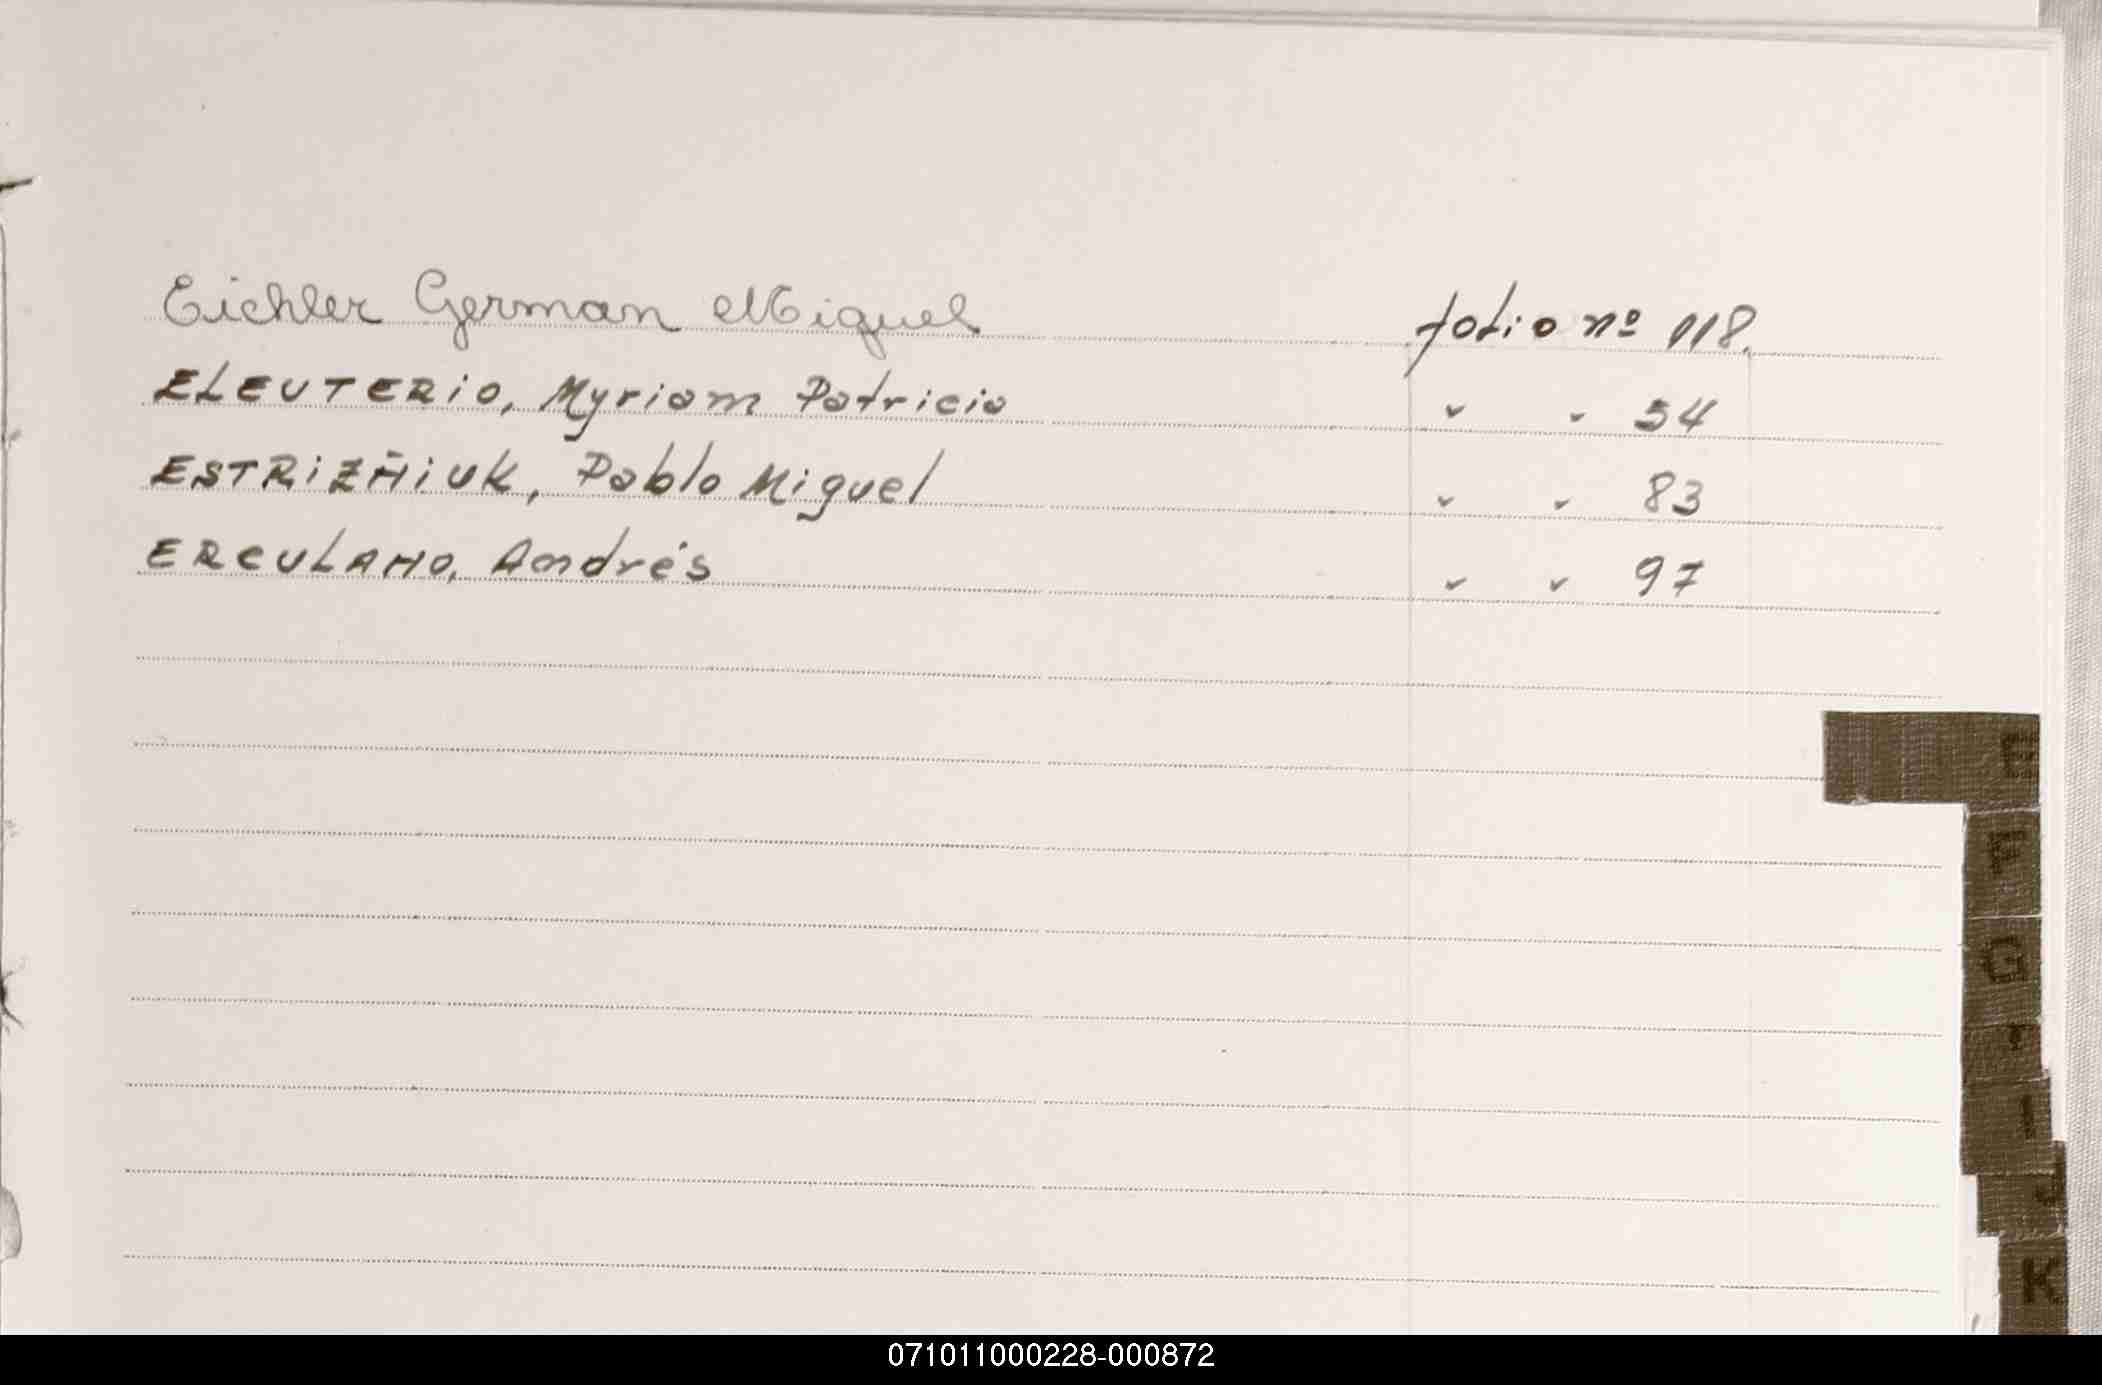 Eichler German Miguel folio nº 118.
ELEUTERiO, Myriam Patricia " " 54
ESTRiZÑiUK, Pablo Miguel " " 83
ERCULANO, Andrés " " 97
E
F
G
I
J
K
071011000228-000872